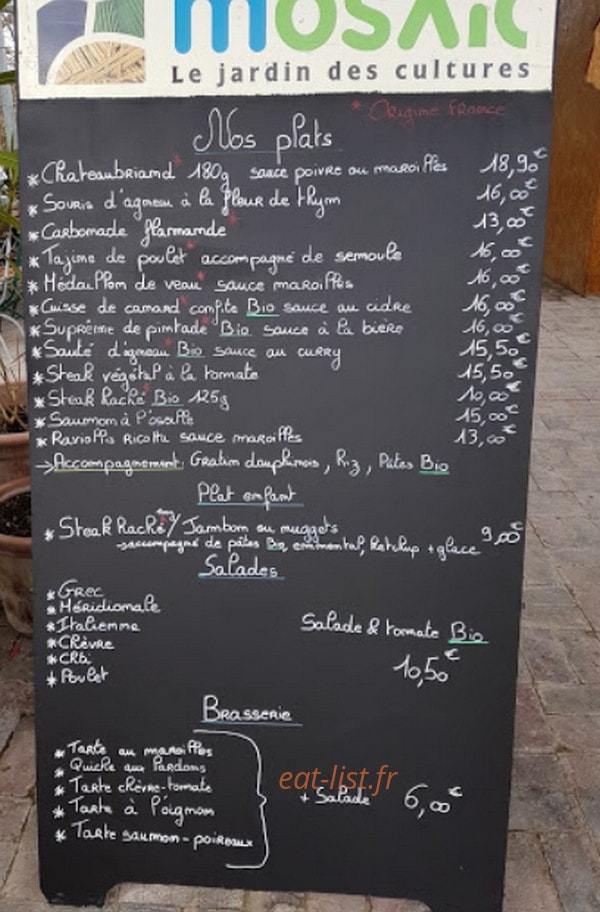 mosaïc
Le jardin des cultures
* Origine France
Nos plats
* Chateaubriand* 180g sauce poivre ou maroilles 18,90€
* Souris d'agneau à la fleur de thym 16,00€
* Carbonade flamande* 13,00€
* Tajine de poulet* accompagné de semoule 16,00€
* Médaillon de veau* sauce maroilles 16,00€
* Cuisse de canard* confite Bio sauce au cidre 16,00€
* Suprême de pintade* Bio sauce à la bière 16,00€
* Sauté d'agneau* Bio sauce au curry 15,50€
* Steak végétal à la tomate 15,50€
* Steak Haché* Bio 125g 10,00€
* Saumon à l'oseille 15,00€
* Raviolis Ricotta sauce maroilles 13,00€
→ Accompagnement: Gratin dauphinois, Riz, Pâtes Bio
Plat enfant
* Steak Haché*/ Jambon ou nuggets 9,00€
→ accompagné de pâtes Bio, emmental, ketchup + glace
Salades
* Grec
* Méridionale
* Italienne
* Chèvre
* CRbi
* Poulet
Salade & tomate Bio
10,50€
Brasserie
* Tarte au maroilles
* Quiche aux lardons
* Tarte chèvre-tomate
* Tarte à l'oignon
* Tarte saumon-poireaux
+ Salade 6,00€
eat-list.fr